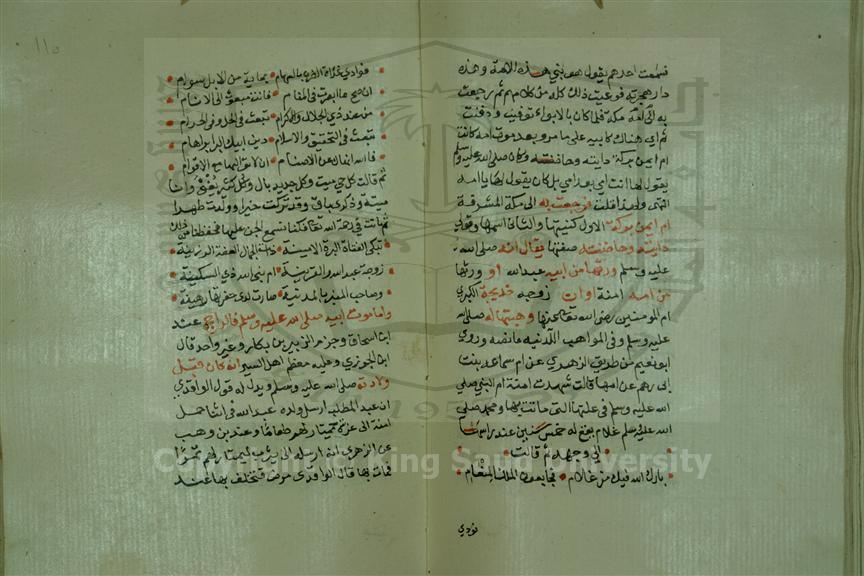 فسمعت احدهم يقول هو نبي هذه الامة وهذه
دار هجرته فوعيت ذلك كله من كلامهم ثم رجعت
به الى امه مكة فلما كان بالابواء توفيت ودفنت
ام ايمن بركة دايته وحاضنته وكان صلى الله عليه وسلم
يقول لها انت امي بعد امي بل كان يقول لها يا امه
انتهى فرجعت به الى مكة المشرفة
ام ايمن بركة الاول كنيتها والثاني اسمها وقولي
دايته وحاضنته صفتها يقال انه صلى الله
عليه وسلم ورثها من ابيه عبد الله او ورثها
من امه امنة او ان زوجه خديجة الكبرى
ام المؤمنين رضي الله تعالى عنها وهبتها له صلى الله
عليه وسلم وفي المواهب اللدنية ما نصه وروى
ابو نعيم من طريق الزهري عن ام سماعة بنت
ابي رهم عن امها قالت شهدت امنة ام النبي صلى
الله عليه وسلم في علتها التي ماتت بها ومحمد صلى
الله عليه وسلم غلام يفع له خمس سنين عند راسها
الى وجهه ثم قالت
بارك الله فيك من غلام نجا بعون الملك المنعام
نودي
١١٥
فودي غداة الضرب بالسهام بماية من الابل سوام
ان صح ما ابصرت في المنام فانت مبعوث الى الانام
من عند ذي الجلال والاكرام تبعث في الحل وفي الحرام
تبعث في التحقيق والاسلام دين ابيك البر ابراهام
فالله انهاك عن الاصنام ان لا تواليها مع الاقوام
ثم قالت كل حي ميت وكل جديد بال وكل كبير يفنى وانا
ميتة وذكري باق وقد تركت خيرا وولدت طهرا
ثم ماتت فكنا نسمع الجن عليها فحفظنا من ذلك
تبكي الفتاة البرة الامينة ذات الجمال العفة الرزينة
زوجة عبد الله والقرينة ام نبي الله ذي السكينة
وصاحب المنبر بالمدينة صارت لدى حفرتها رهينة
واما موت ابيه صلى الله عليه وسلم فالراجح عند
ابن اسحاق وجزم الزبير بن بكار وغير واحد قال
ابن الجوزي وعليه معظم اهل السير انه كان قبل
ولادته صلى الله عليه وسلم ويدل له قول الواقدي
ان عبد المطلب ارسل ولده عبد الله في اثنا حمل
امنة الى غزة يمتار لهم طعاما وعند بن وهب
عن الزهري انه ارسله الى يثرب ليمتار لهم تمرا
فمات بها قال الواقدي مرض فتخلف بها عند
Copyright © King Saud University
1957